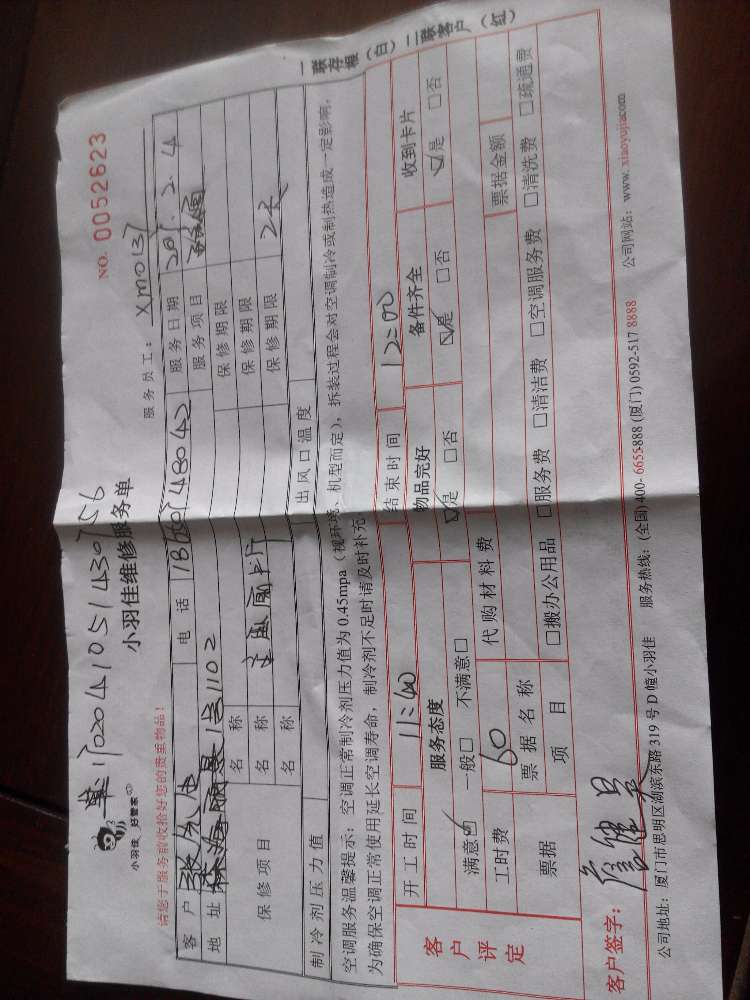 单:1702041051430756
NO. 0052623
小羽佳 好管家
小羽佳维修服务单
服务员工: Xm0137
请您于服务前收拾好您的贵重物品!
客户 电话 18601148042 服务日期 201.2.4
地址 1102 服务项目
保修项目 名称 保修期限
名称 保修期限
名称 保修期限 2天
制冷剂压力值 出风口温度
空调服务温馨提示: 空调正常制冷剂压力值为 0.45mpa(视环境、机型而定), 拆装过程会对空调制冷或制热造成一定影响,
为确保空调正常使用延长空调寿命, 制冷剂不足时请及时补充
一联存根(白)二联客户(红)
客户评定
开工时间 11:40 结束时间 12:00
服务态度 物品完好 备件齐全 收到卡片
满意☑ 一般□ 不满意□ ☑是 □否 ☑是 □否 ☑是 □否
工时费 60 代购材料费
票据 票据名称 票据金额
项目 □搬办公用品 □服务费 □清洁费 □空调服务费 □清洗费 □疏通费
客户签字:
公司地址: 厦门市思明区湖滨东路 319 号 D 幢小羽佳 服务热线: (全国)400-6655-888 (厦门) 0592-517 8888 公司网站: www.xiaoyujia.com